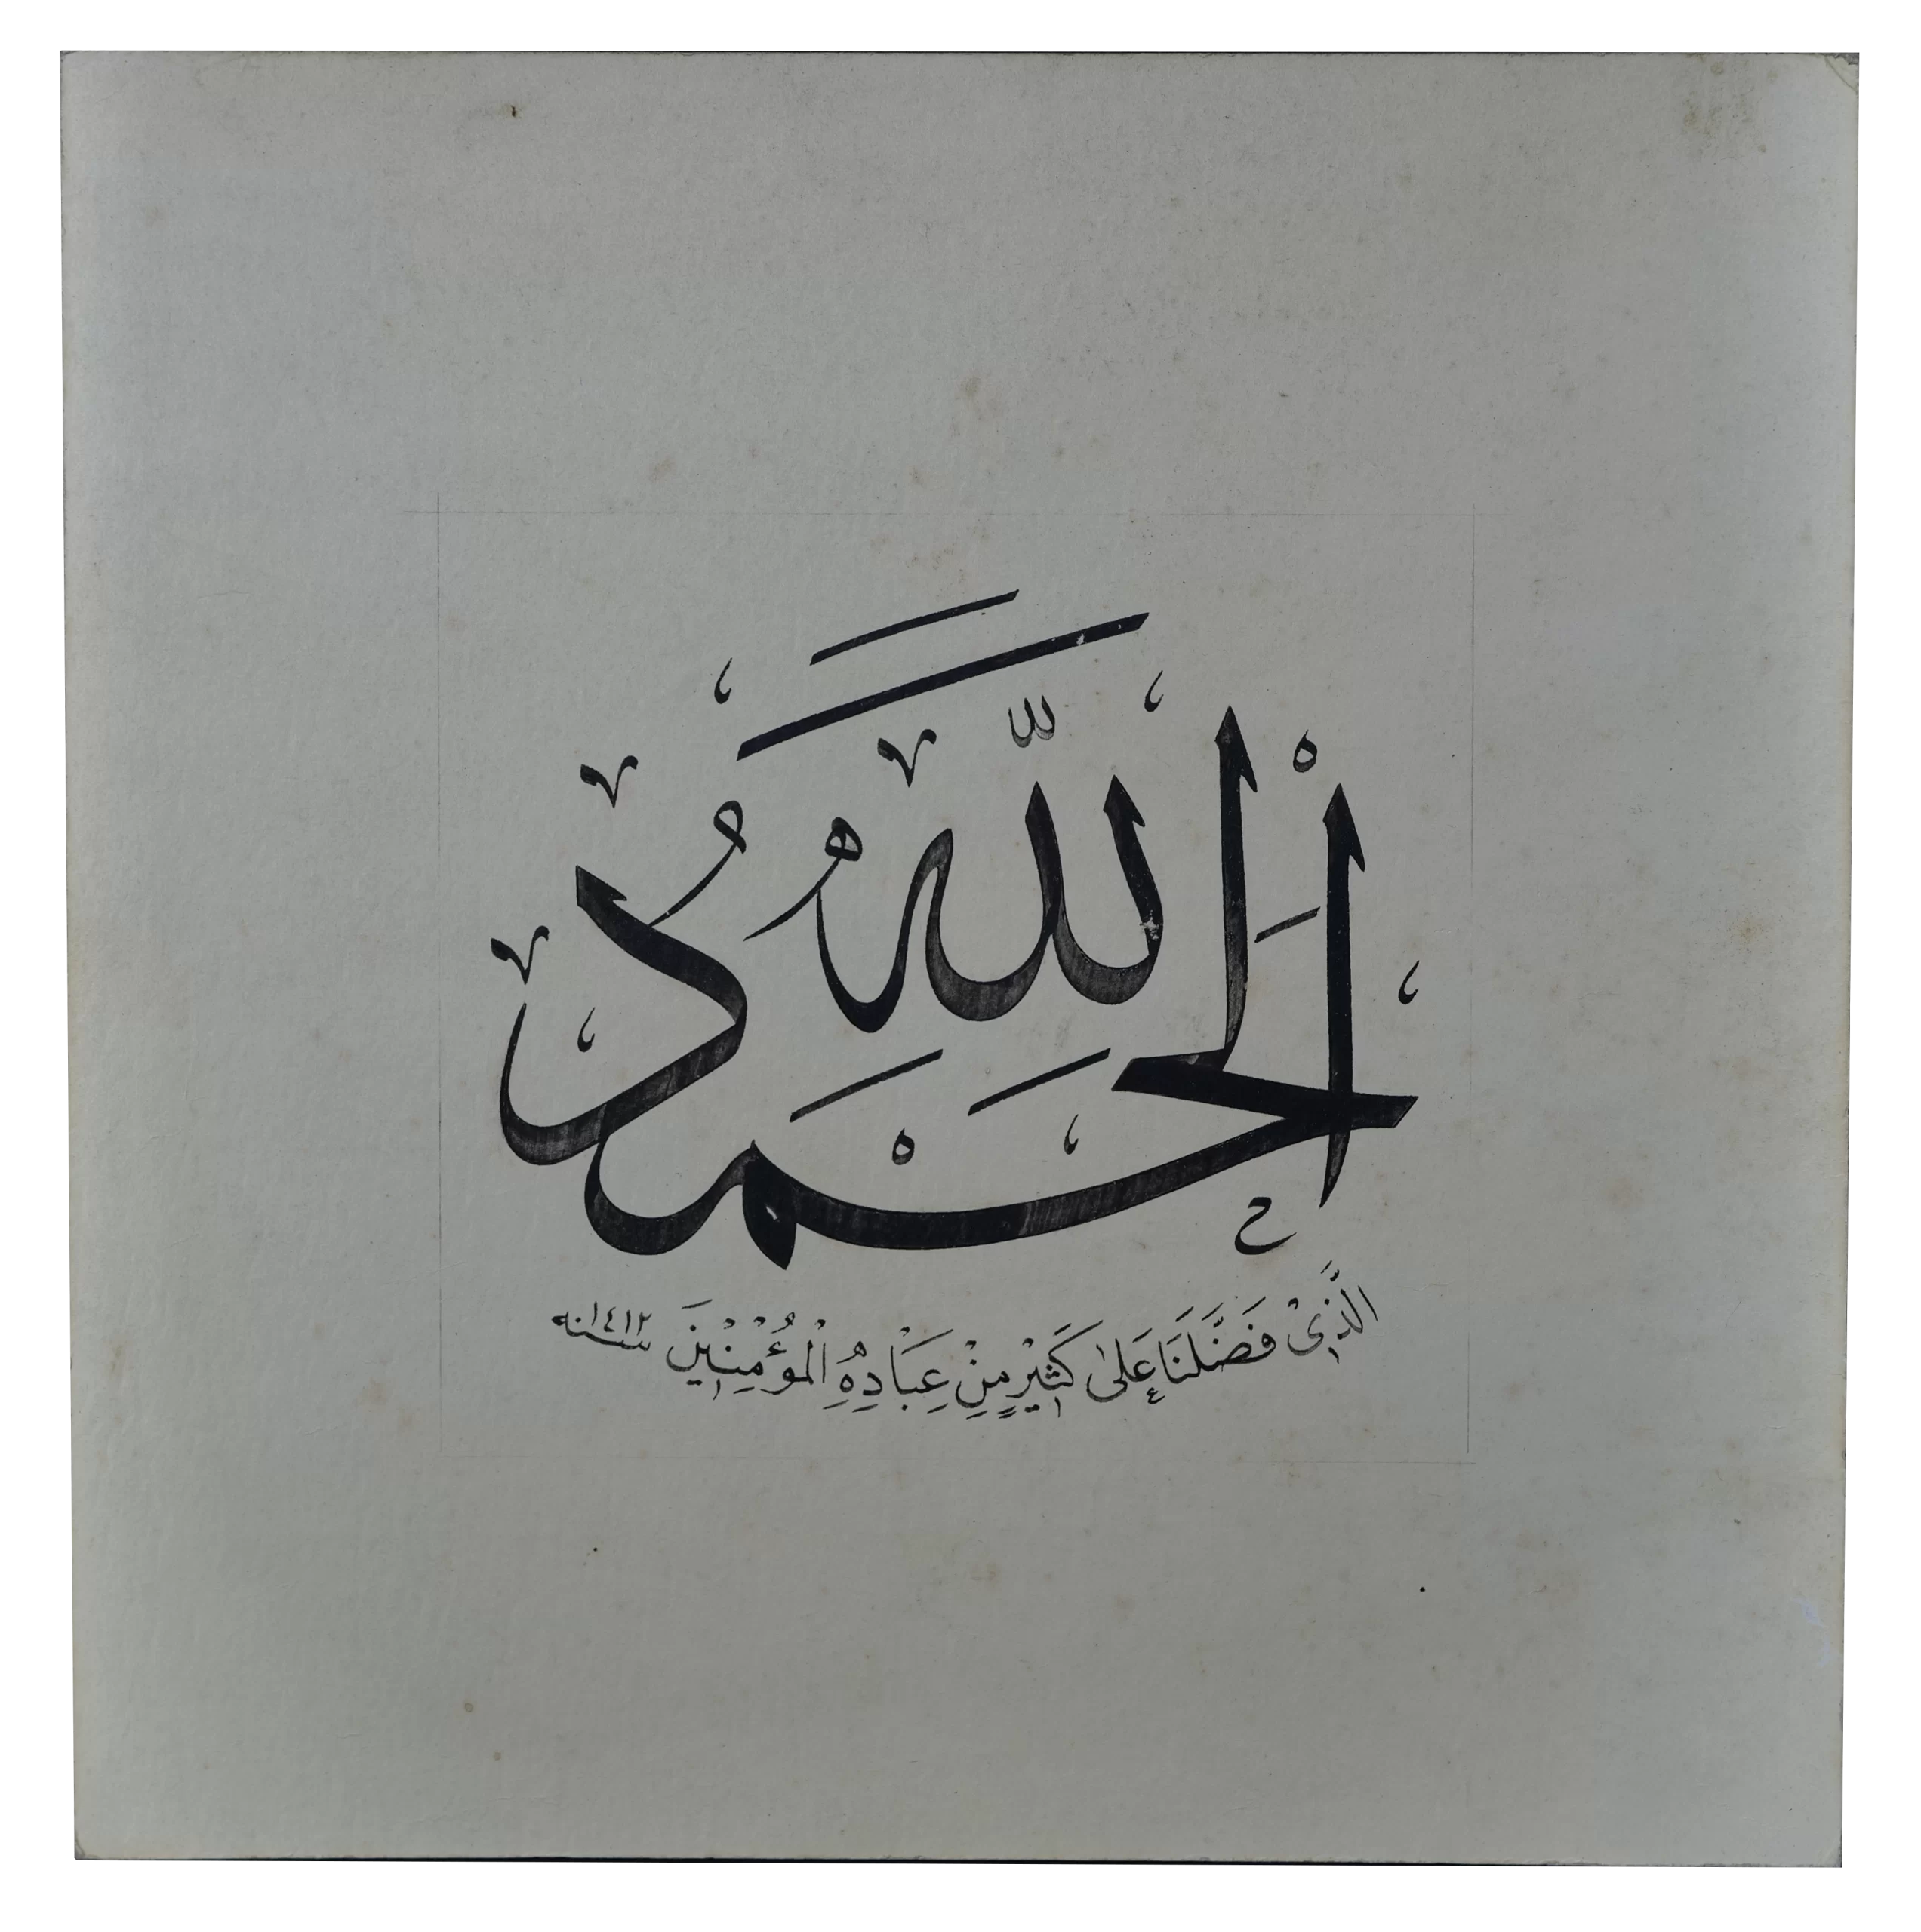 اَلْحَمْدُ لِلّٰهِ
الَّذِى فَضَّلَنَا عَلٰى كَثِيْرٍ مِنْ عِبَادِهِ الْمُؤْمِنِيْنَ سنه ١٤١٢